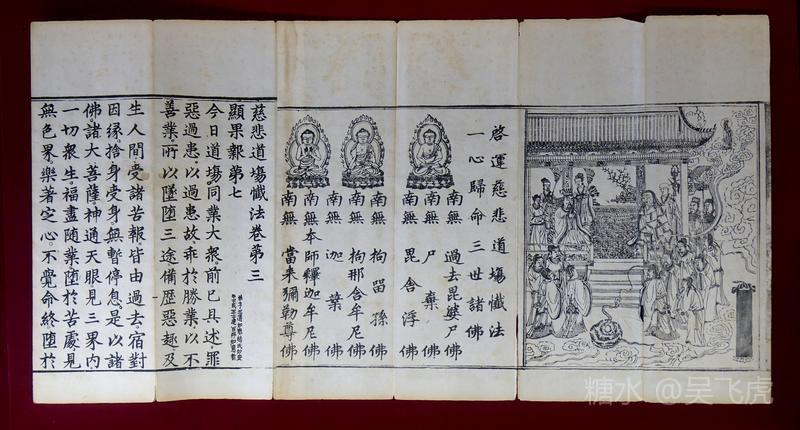 啓運慈悲道場懺法
一心歸命三世諸佛
南無過去毘婆尸佛
南無尸棄佛
南無毘舍浮佛
南無拘留孫佛
南無拘那含牟尼佛
南無迦葉佛
南無本師釋迦牟尼佛
南無當來彌勒尊佛
慈悲道場懺法卷第三
顯果報第七
今日道場同業大衆前已具述罪
惡過患以過患故乖於勝業以不
善業所以墜墮三途備歷惡趣及
生人間受諸苦報皆由過去宿對
因緣捨身受身無暫停息是以諸
佛諸大菩薩神通天眼見三界內
一切衆生福盡隨業墮於苦處見
無色界樂著定心不覺命終墮於
糖水 @吴飞虎